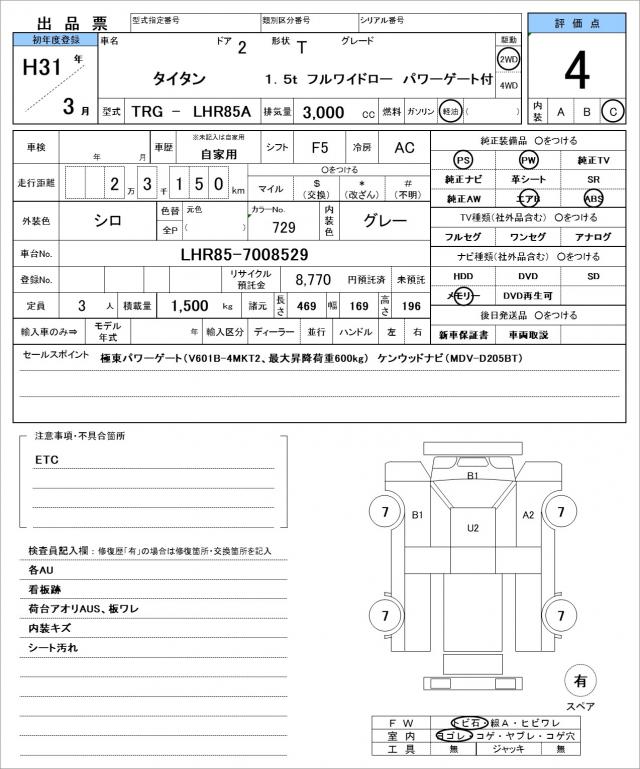 出品票 型式指定番号 類別区分番号 シリアル番号 評価点
初年度登録 車名 ドア 2 形状 T グレード 駆動
H31 年 タイタン 1.5t フルワイドロー パワーゲート付 2WD 4
4WD
3 月 型式 TRG - LHR85A 排気量 3,000 cc 燃料 ガソリン 軽油 ( ) 内装 A B C
車検 年 月 車歴 ※未記入は自家用 自家用 シフト F5 冷房 AC 純正装備品 〇をつける
PS PW 純正TV
走行距離 2 万 3 千 1 5 0 km 〇をつける
マイル $ (交換) * (改ざん) # (不明) 純正ナビ 革シート SR
純正AW エアB ABS
外装色 シロ 色替 元色 カラーNo. 内装色 グレー TV種類(社外品含む) 〇をつける
全P ( ) 729 フルセグ ワンセグ アナログ
車台No. LHR85-7008529 ナビ種類(社外品含む) 〇をつける
登録No. リサイクル預託金 8,770 円預託済 未預託 HDD DVD SD
定員 3 人 積載量 1,500 kg 諸元 長さ 469 幅 169 高さ 196 メモリー DVD再生可
後日発送品 〇をつける
輸入車のみ⇒ モデル年式 年 輸入区分 ディーラー 並行 ハンドル 左 右 新車保証書 車両取説
セールスポイント 極東パワーゲート(V601B-4MKT2、最大昇降荷重600kg) ケンウッドナビ(MDV-D205BT)
注意事項・不具合箇所
ETC
検査員記入欄：修復歴「有」の場合は修復箇所・交換箇所を記入
各AU
看板跡
荷台アオリAUS、板ワレ
内装キズ
シート汚れ
B1
7 B1 U2 A2 7
7 7
有
スペア
FW トビ石・線A・ヒビワレ
室内 ヨゴレ・コゲ・ヤブレ・コゲ穴
工具 無 ジャッキ 無